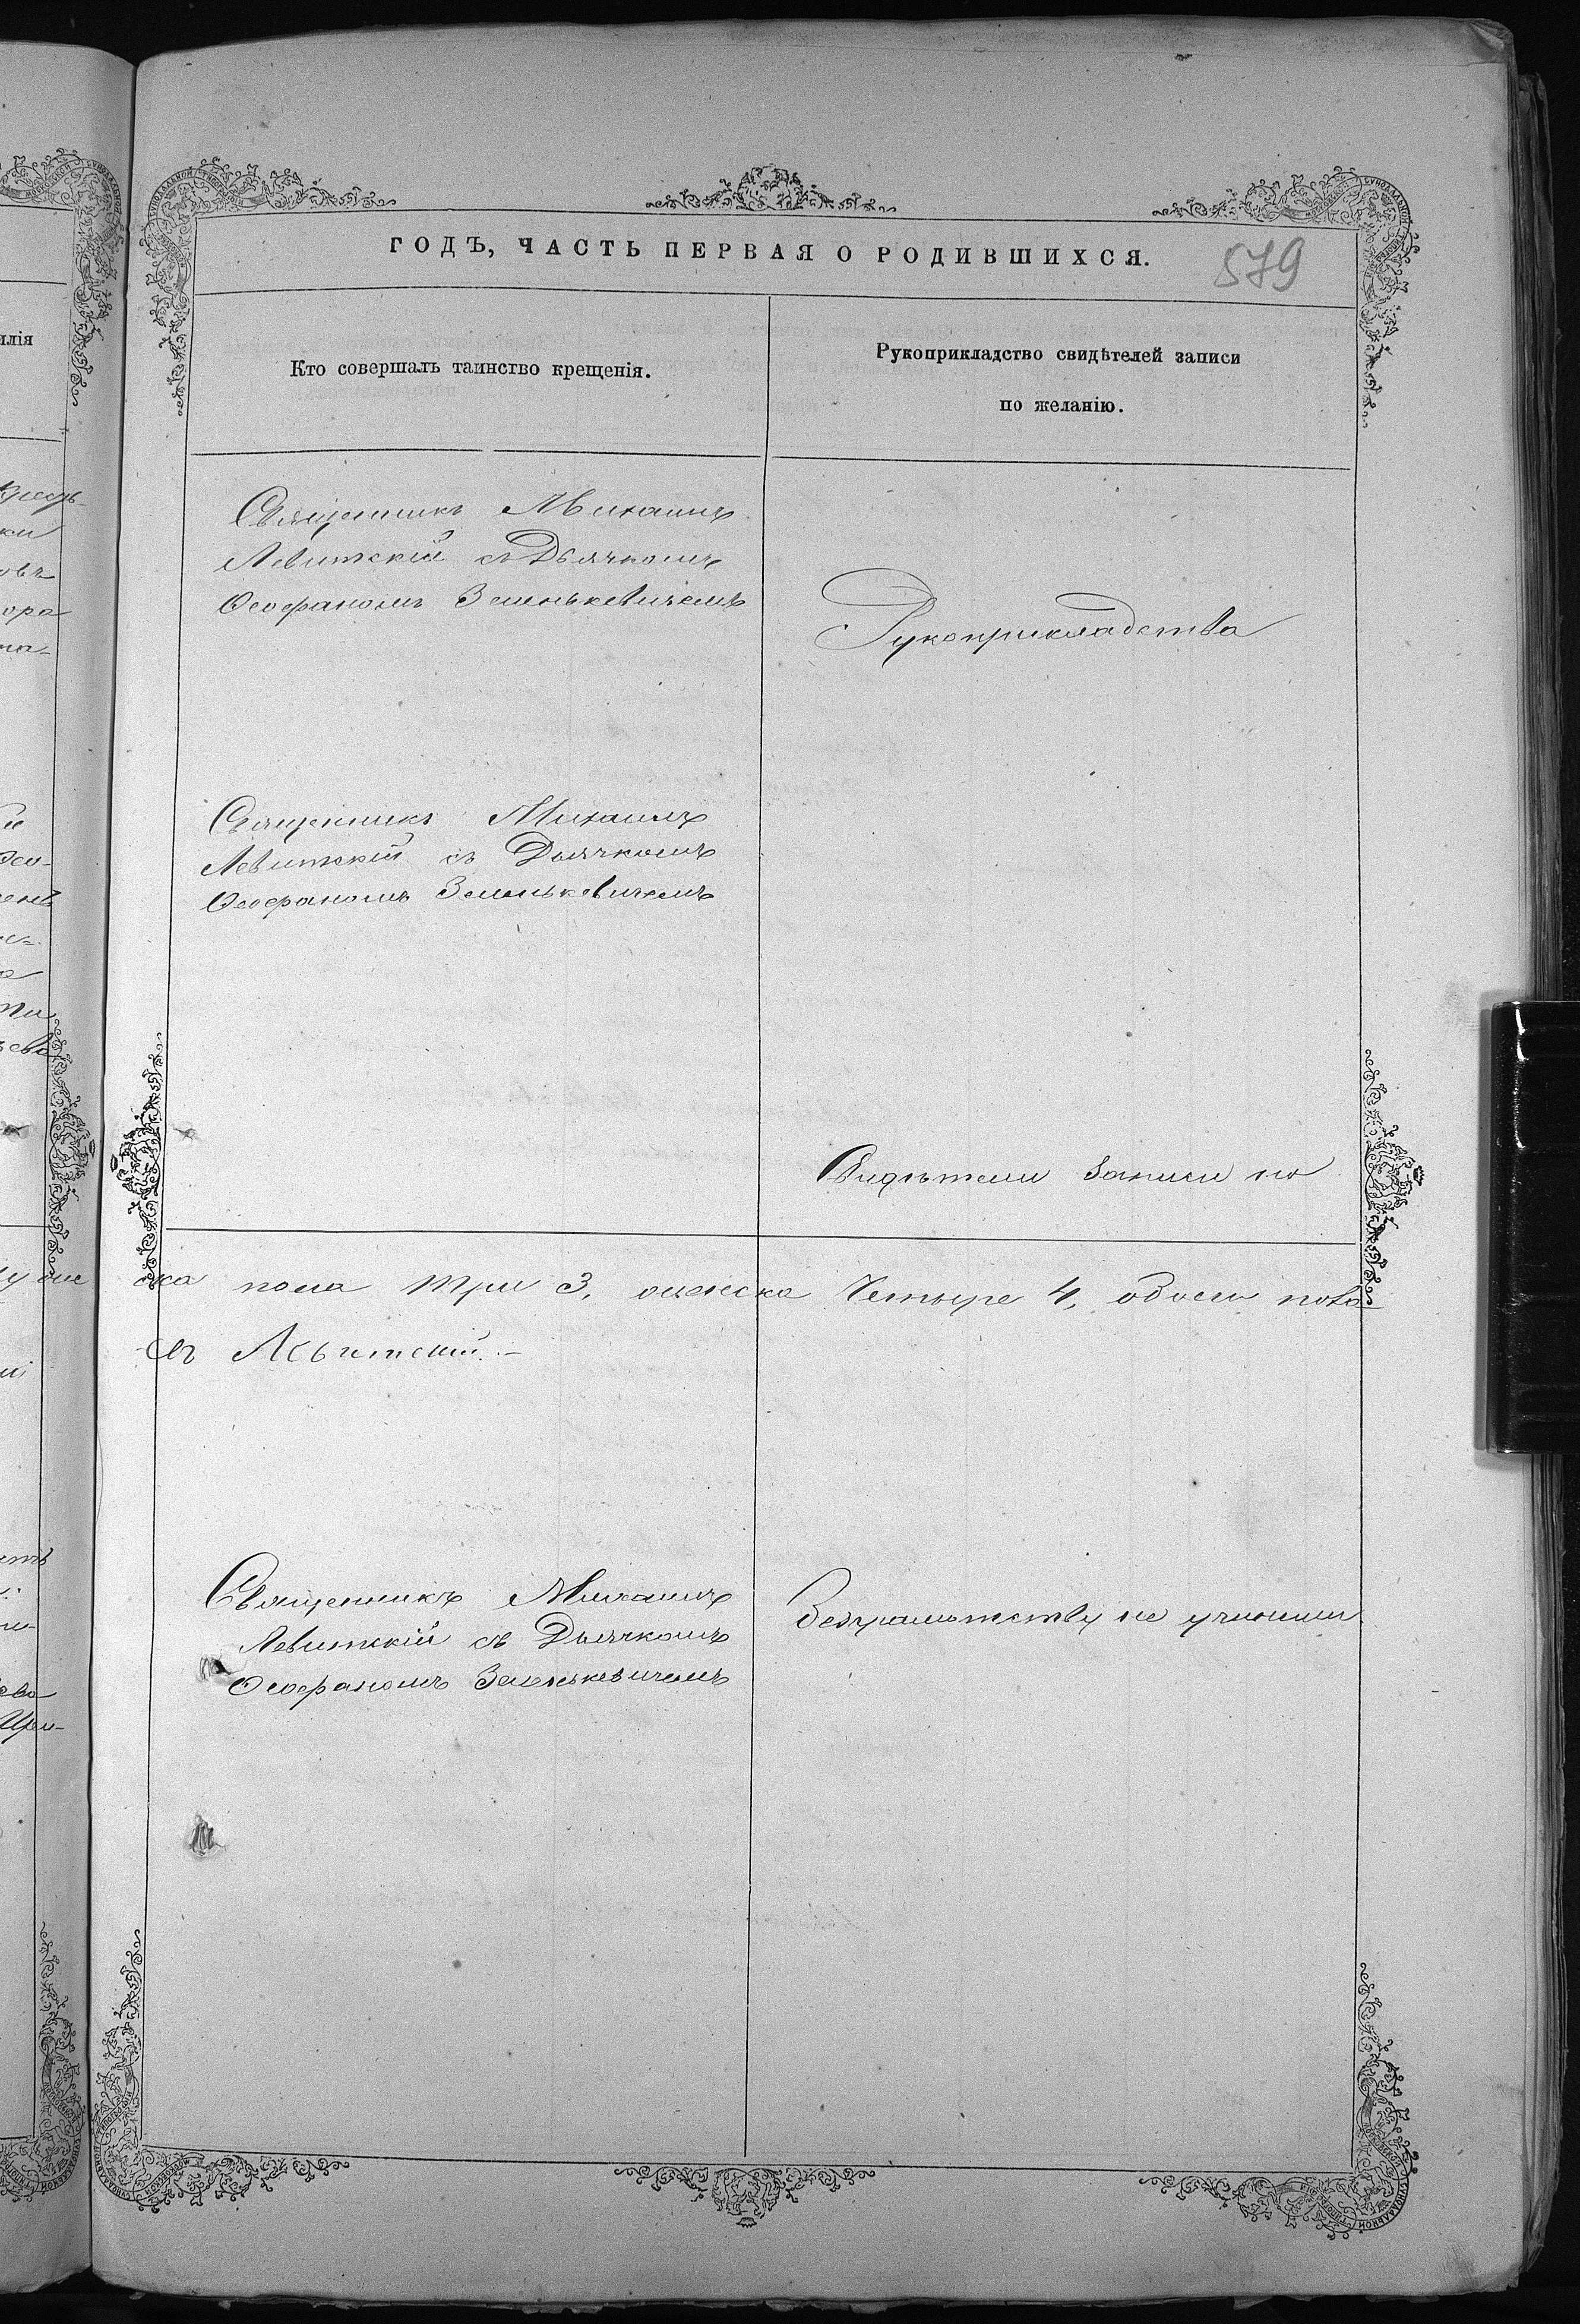 ГОДЪ, ЧАСТЬ ПЕРВАЯ О РОДИВШИХСЯ.
579
илія
Кто совершалъ таинство крещенія.
Рукоприкладство свидѣтелей записи
по желанію.
Священникъ Михаилъ
Левитскій съ Дьячкомъ
Ѳеофаномъ Зенькевичемъ
Рукоприкладства
Священникъ Михаилъ
Левитскій съ Дьячкомъ
Ѳеофаномъ Зенькевичемъ
Свидѣтели записи по
ска пола три 3, женска Четыре 4, обоего пола
Левитскій.
Священникъ Михаилъ
Левитскій съ Дьячкомъ
Ѳеофаномъ Зенькевичемъ
безграмотству не учинили